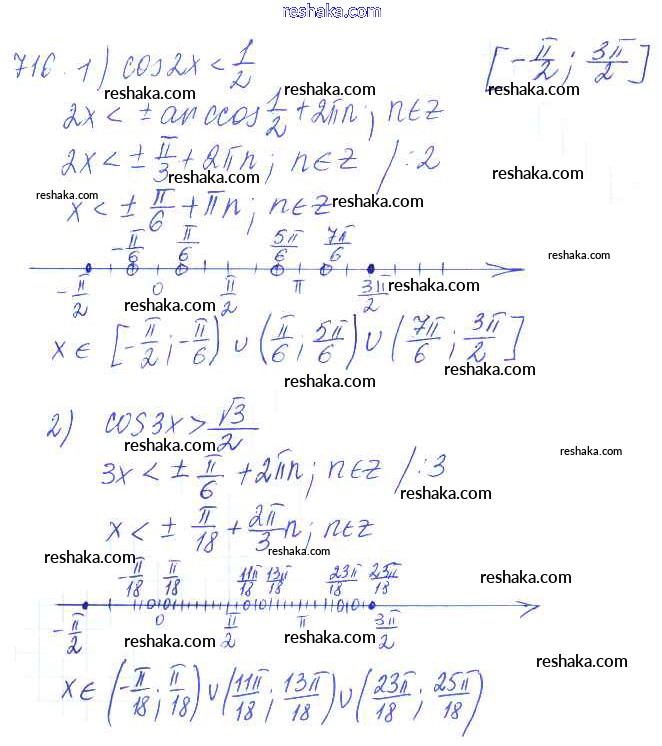 reshaka.com
716. 1) cos2x < 1/2 [-π/2; 3π/2]
reshaka.com reshaka.com
2x < ± arccos 1/2 + 2πn; n∈Z
reshaka.com
2x < ± π/3 + 2πn; n∈Z /:2
reshaka.com
reshaka.com
x < ± π/6 + πn; n∈Z
reshaka.com
-π/6 π/6 5π/6 7π/6
reshaka.com
-π/2 0 π/2 π 3π/2
reshaka.com
x∈ [-π/2; -π/6) ∪ (π/6; 5π/6) ∪ (7π/6; 3π/2]
reshaka.com
reshaka.com
reshaka.com
2) cos3x > √3/2
reshaka.com
reshaka.com
3x < ± π/6 + 2πn; n∈Z /:3
reshaka.com
x < ± π/18 + 2π/3 n; n∈Z
reshaka.com
reshaka.com
-π/18 π/18 11π/18 13π/18 23π/18 25π/18
reshaka.com
-π/2 0 π/2 π 3π/2
reshaka.com reshaka.com
reshaka.com
x∈ (-π/18; π/18) ∪ (11π/18; 13π/18) ∪ (23π/18; 25π/18)
reshaka.com
reshaka.com